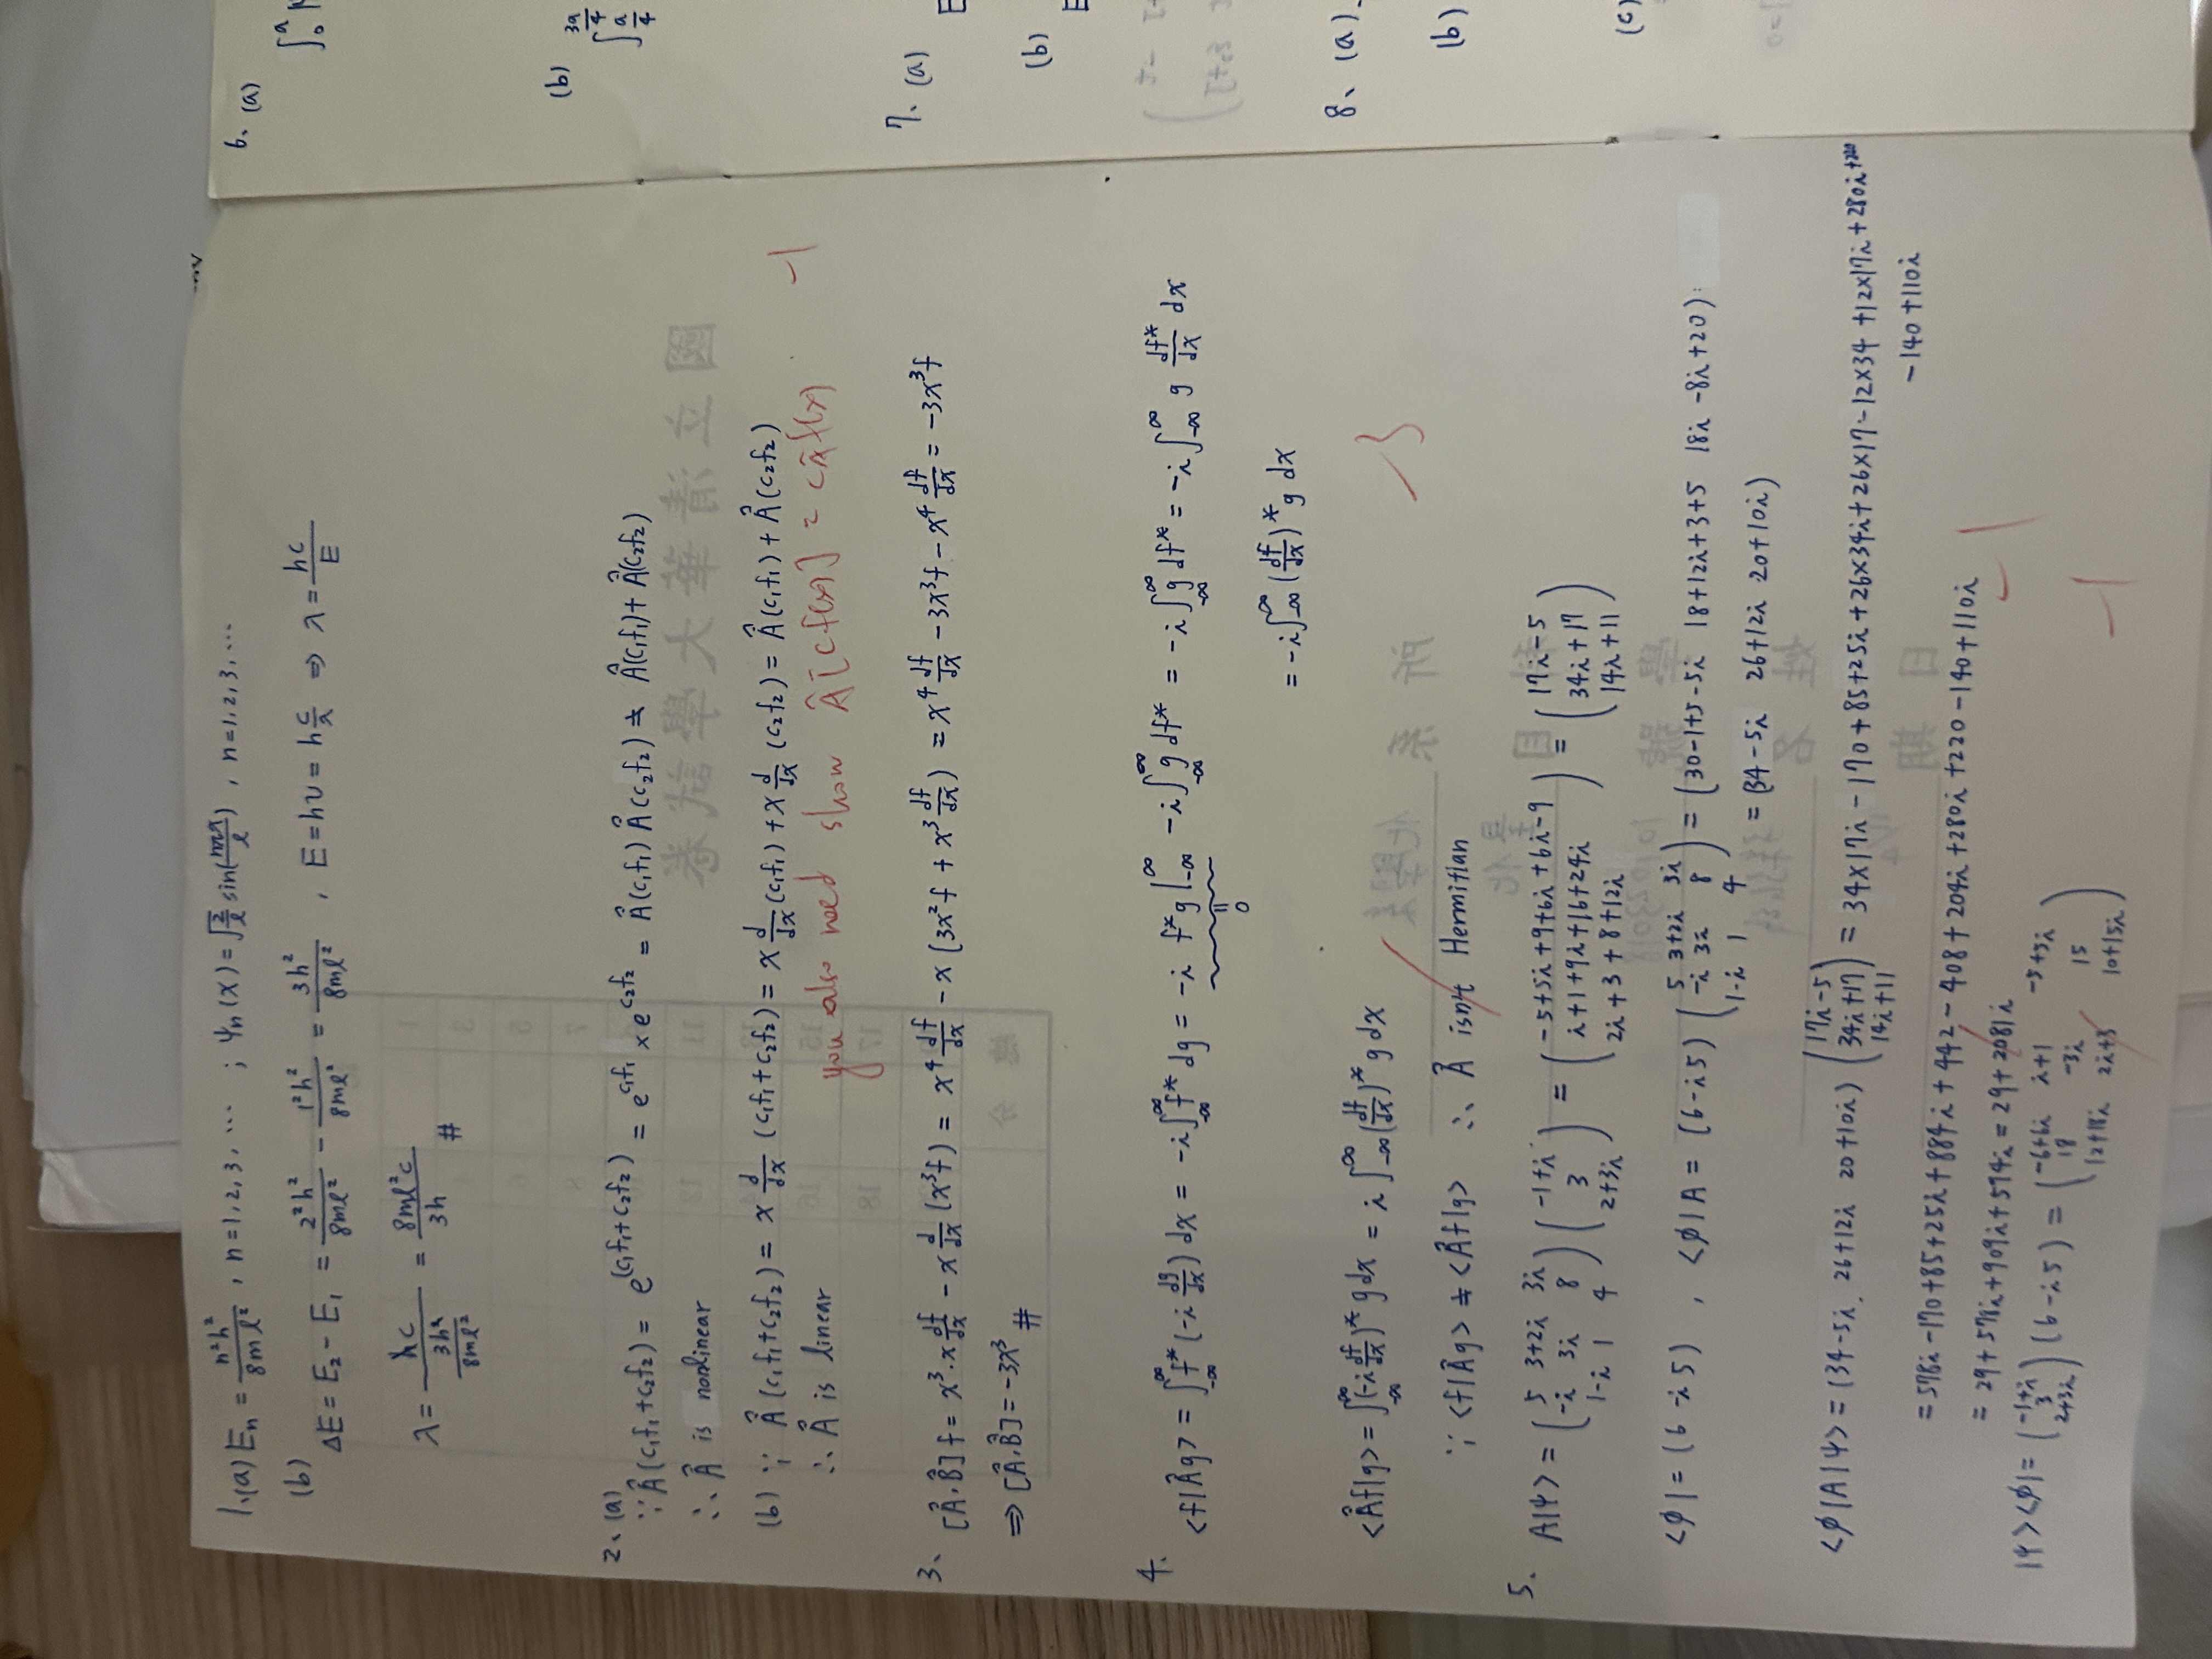 1.(a) Eₙ = n²h²/8mℓ² , n=1,2,3,⋯ ; ψₙ(x)=√(2/ℓ) sin(nπx/ℓ) , n=1,2,3,⋯
(b) ΔE = E₂ − E₁ = 2²h²/8mℓ² − 1²h²/8mℓ² = 3h²/8mℓ² , E=hν = h c/λ ⇒ λ = hc/E
λ = hc/(3h²/8mℓ²) = 8mℓ²c/3h #
2、(a)
∵ Â(c₁f₁+c₂f₂) = e^(c₁f₁+c₂f₂) = e^c₁f₁ × e^c₂f₂ = Â(c₁f₁) Â(c₂f₂) ≠ Â(c₁f₁)+ Â(c₂f₂)
∴ Â is nonlinear
(b) ∵ Â(c₁f₁+c₂f₂) = x d/dx (c₁f₁+c₂f₂) = x d/dx (c₁f₁) + x d/dx (c₂f₂) = Â(c₁f₁) + Â(c₂f₂)
∴ Â is linear
you also need show Â[cf(x)] = cÂf(x) −1
3、[Â,B̂] f = x³·x df/dx − x d/dx (x³f) = x⁴ df/dx − x (3x²f + x³ df/dx) = x⁴ df/dx − 3x³f − x⁴ df/dx = −3x³f
⇒ [Â,B̂] = −3x³ #
4.
<f|Âg> = ∫_{-∞}^{∞} f* (−i dg/dx) dx = −i∫_{-∞}^{∞} f* dg = −i f*g |_{-∞}^{∞} −i∫_{-∞}^{∞} g df* = −i∫_{-∞}^{∞} g df* = −i∫_{-∞}^{∞} g df*/dx dx
0
= −i∫_{-∞}^{∞} (df/dx)* g dx
<Âf|g> = ∫_{-∞}^{∞} (−i df/dx)* g dx = i ∫_{-∞}^{∞} (df/dx)* g dx
−3
∵ <f|Âg> ≠ <Âf|g> ∴ Â isn't Hermitian
5、
A|ψ> = (5 3+2i 3i; −i 3i 8; 1−i 1 4) (−1+i; 3; 2+3i) = (−5+5i+9+6i+6i−9; i+1+9i+16+24i; 2i+3+8+12i) = (17i−5; 34i+17; 14i+11)
<φ| = (6 −i 5) , <φ|A = (6 −i 5) (5 3+2i 3i; −i 3i 8; 1−i 1 4) = (30−1+5−5i 18+12i+3+5 18i −8i+20)
= (34−5i 26+12i 20+10i)
<φ|A|ψ> = (34−5i 26+12i 20+10i) (17i−5; 34i+17; 14i+11) = 34×17i − 170 + 85+25i + 26×34i + 26×17 − 12×34 + 12×17i + 280i + 220
−140 + 110i
= 578i −170+85+25i+884i + 442 − 408 + 204i + 280i + 220 −140+110i
= 29 + 578i + 909i + 594i = 29 + 2081i −1
|ψ><φ| = (−1+i; 3; 2+3i) (6 −i 5) = (−6+6i i+1 −5+5i; 18 −3i 15; 12+18i 2i+3 10+15i)
−1
6、(a)
∫₀^a
(b)
∫_{a/4}^{3a/4}
7、(a)
E
(b)
E
8、(a)
(b)
(c)
國立清華大學試卷
總分
所系
科目
學號
姓名
日期